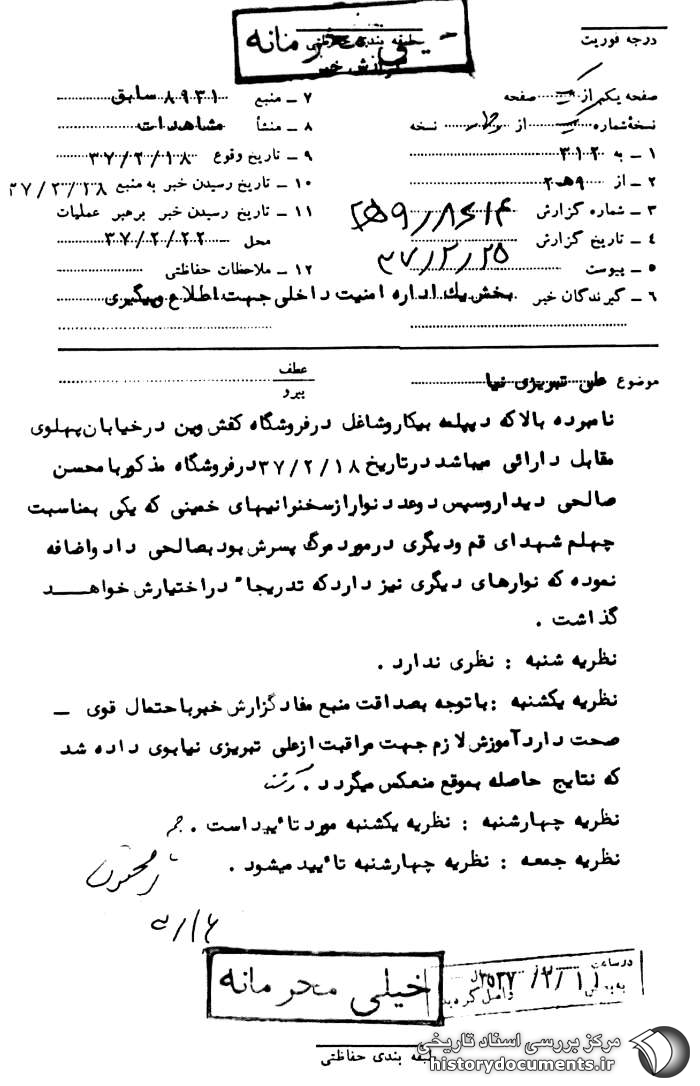 خیلی محرمانه
طبقه بندی حفاظتی
گزارش خبر
درجه فوریت
صفحه یکم از صفحه
نسخهٔ شماره از نسخه
۱ ـ به ۳۱۲
۲ ـ از ۹هـ۲
۳ ـ شماره گزارش
۴ ـ تاریخ گزارش ۳۷/۲/۲۵
۵ ـ پیوست
۶ ـ گیرندگان خبر بخش یک اداره امنیت داخلی جهت اطلاع و پیگیری
۷ ـ منبع ۸۹۳۱ سابق
۸ ـ منشأ مشاهدات
۹ ـ تاریخ وقوع ۳۷/۲/۱۸
۱۰ ـ تاریخ رسیدن خبر به منبع ۳۷/۲/۱۸
۱۱ ـ تاریخ رسیدن خبر برهبر عملیات
محل ۳۷/۲/۲۲
۱۲ ـ ملاحظات حفاظتی
موضوع علی تبریزی نیا
عطف
پیرو
نامبرده بالا که دیپلمه بیکار و شاغل در فروشگاه کفش وین در خیابان پهلوی
مقابل دارائی میباشد در تاریخ ۳۷/۲/۱۸ در فروشگاه مذکور با محسن
صالحی دیدار و سپس دو عدد نوار از سخنرانیهای خمینی که یکی بمناسبت
چهلم شهدای قم و دیگری در مورد مرگ پسرش بود بصالحی داد و اضافه
نموده که نوارهای دیگری نیز دارد که تدریجاً در اختیارش خواهد
گذاشت .
نظریه شنبه : نظری ندارد .
نظریه یکشنبه : با توجه بصداقت منبع مفاد گزارش خبر با احتمال قوی ـ
صحت دارد آموزش لازم جهت مراقبت از علی تبریزی نیا بوی داده شد
که نتایج حاصله بموقع منعکس میگردد .
نظریه چهارشنبه : نظریه یکشنبه مورد تائید است .
نظریه جمعه : نظریه چهارشنبه تائید میشود .
خیلی محرمانه
در ساعت
۲۵۳۷/۲/۱۱
واصل گردید
طبقه بندی حفاظتی
مرکز بررسی اسناد تاریخی
historydocuments.ir